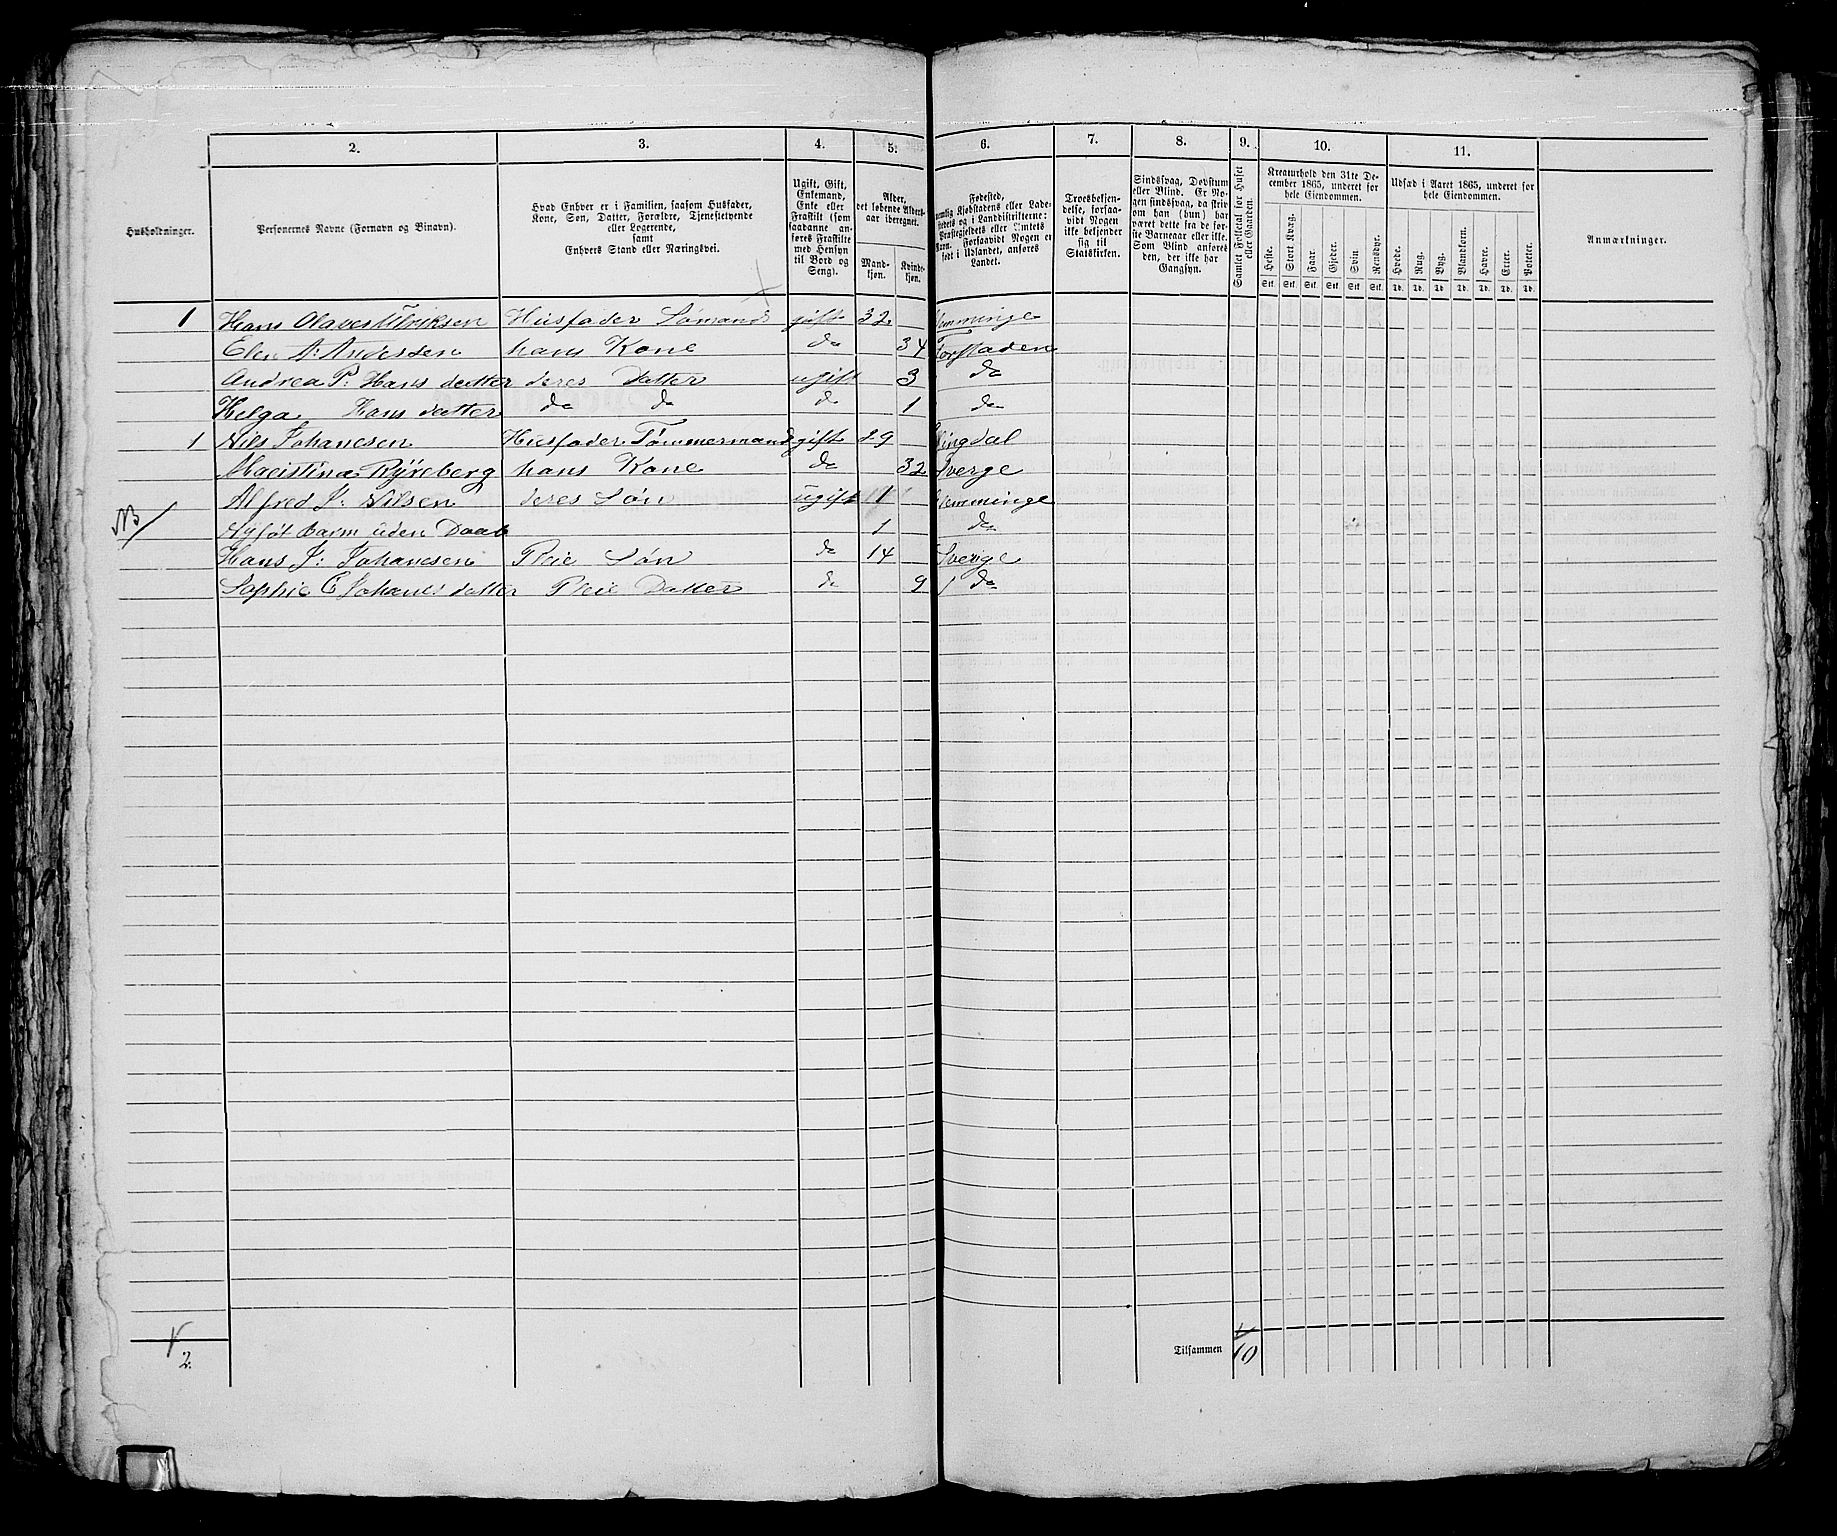 2. 3. 4. 5. 6. 7. 8. 9. 10. 11.
Husholdninger.
Personernes Navne (Fornavn og Binavn).
Hvad Enhver er i Familien, saasom Husfader,
Kone, Søn, Datter, Forældre, Tjenestetyende
eller Logerende,
samt
Enhvers Stand eller Næringsvei.
Ugift, Gift,
Enkemand,
Enke eller
Fraskilt (som
saadanne an-
føres Fraskilte
med Hensyn
til Bord og
Seng).
Alder,
det løbende Alders-
aar iberegnet.
Mand-
kjøn.
Kvinde-
kjøn.
Fødested,
nemlig Kjøbstadens eller Lade-
stedets og i Landdistrikterne:
Præstegjeldets eller Amtets
Navn. Forsaavidt Nogen er
født i Udlandet, anføres
Landet.
Troesbekjen-
delse, forsaa-
vidt Nogen
ikke bekjender
sig til
Statskirken.
Sindssvag, Døvstum
eller Blind. Er No-
gen sindssvag, da skriv
om han (hun) har
været dette fra de før-
ste Barneaar eller ikke.
Som Blind anføres
den, der ikke har
Gangsyn.
Samlet Folketal for Huset
eller Gaarden.
Kreaturhold den 31te De-
cember 1865, underet for
hele Eiendommen.
Heste. Stort Kvæg. Faar. Gjeder. Svin. Rensdyr.
Stk. Stk. Stk. Stk. Stk. Stk.
Udsæd i Aaret 1865, underet for
hele Eiendommen.
Hvede. Rug. Byg. Blandkorn. Havre. Erter. Poteter.
Td. Td. Td. Td. Td. Td. Td.
Anmærkninger.
1 Hans Olaves Ulriksen Husfader Sømand gift 32 Glemminge
Elen A: Andersen hans Kone do 34 Forstaden
Andrea P: Hans datter deres Datter ugift 3 do
Helga Hans datter do do do 1 do
1 Nils Johanesen Husfader Tømmermand gift 29 Vingdal
hans Kone do 32 Sverge
Alfred J: Nilsen deres Søn ugift 1 Glemminge
NB Nyføt barn uden Daab 1 do
Hans J: Johanesen Pleie Søn do 14 Sverige
Sophie E Johanes datter Pleie Datter do 9 do
2.
Tilsammen 10